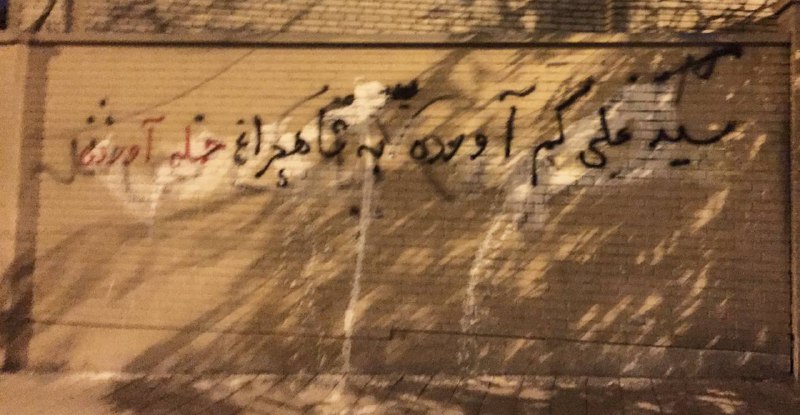 سید علی کم آورده به شاهچراغ حمله آورده